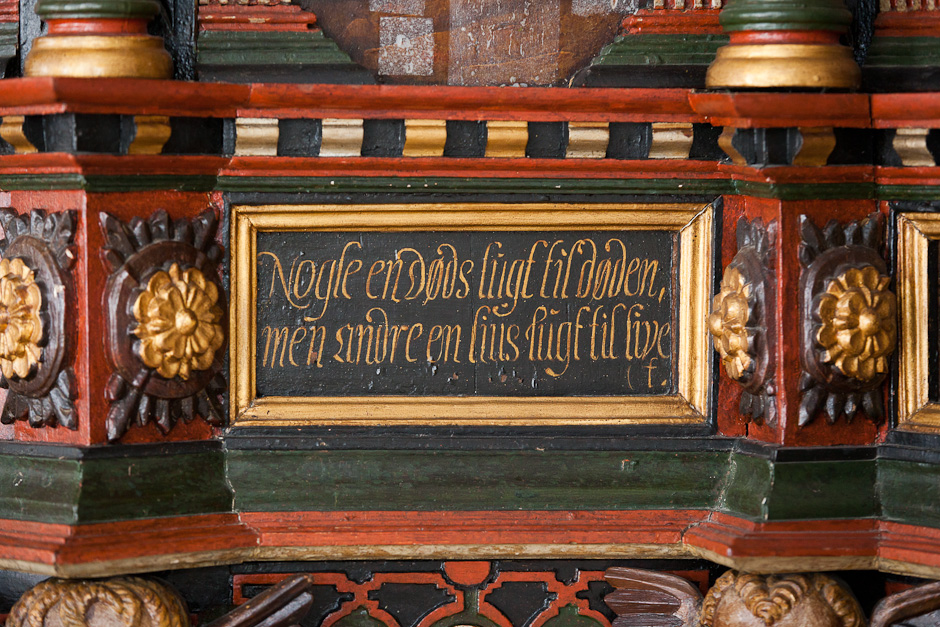 Nogle en Døds lugt til døden,
men andre en liuis lugt til live